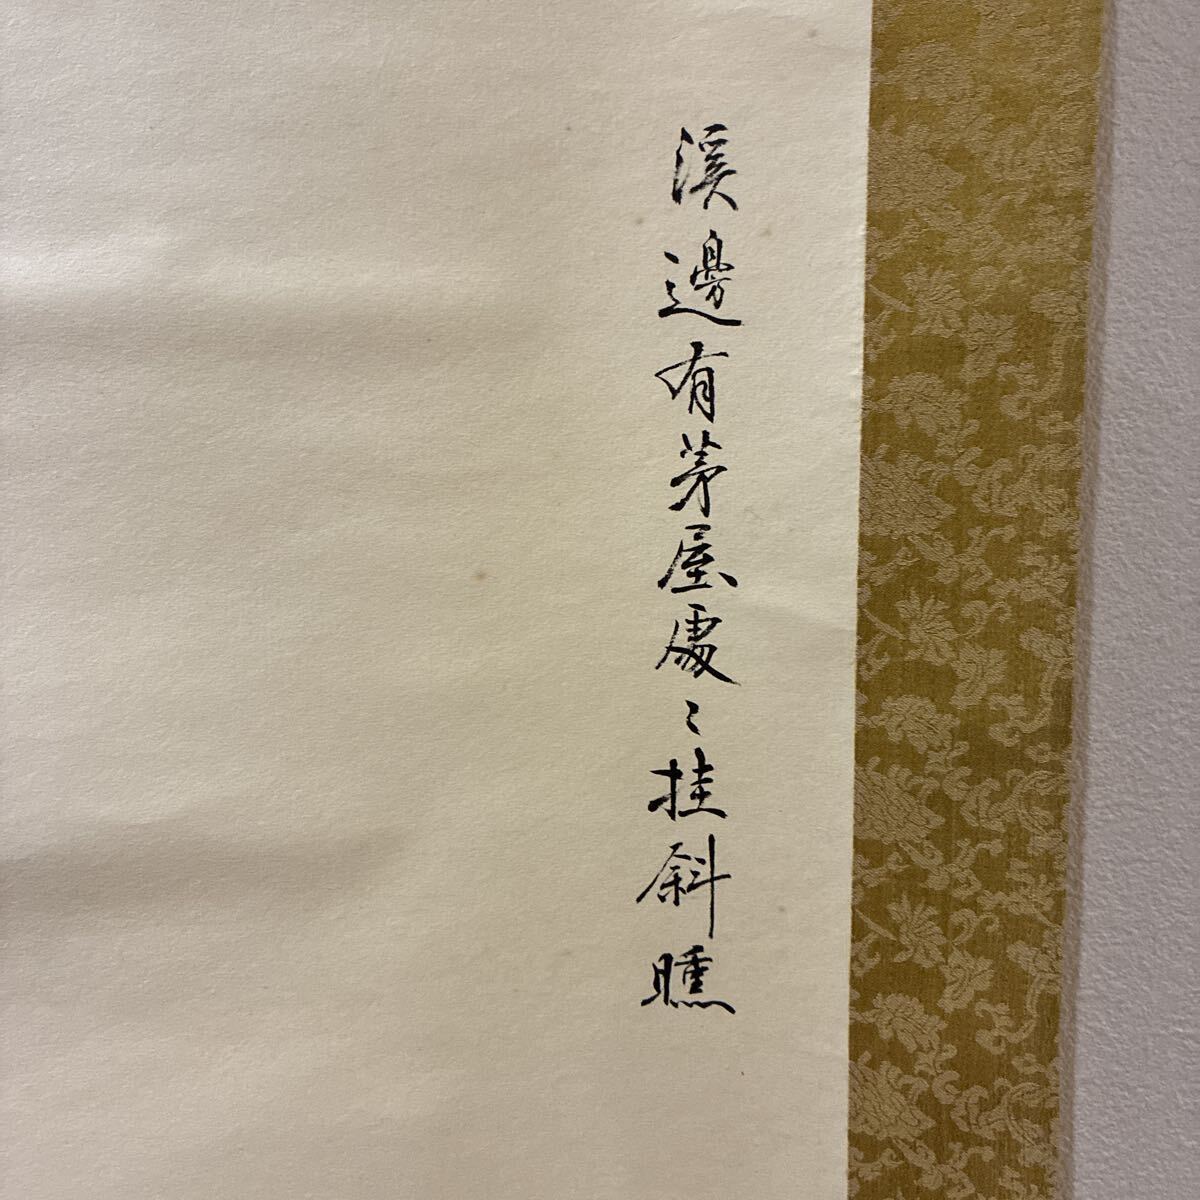 溪邊有茅屋處〻挂斜曛